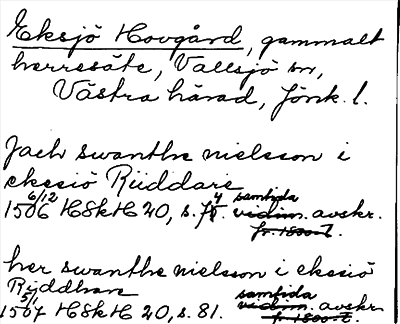 Eksjö Hovgård, gammalt
herresäte, Vallsjö sn,
Västra härad, Jönk. l.
Jach swanthe nielsson i
ekesiö Riiddare
6/12 1506 HSkH 20, s. 74. samtida vidim. avskr.
fr. 1500-t.
her swanthe nielsson i eksiö
Ryddhare
5/1 1507 HSkH 20, s. 81. samtida vidim. avskr.
fr. 1500-t.